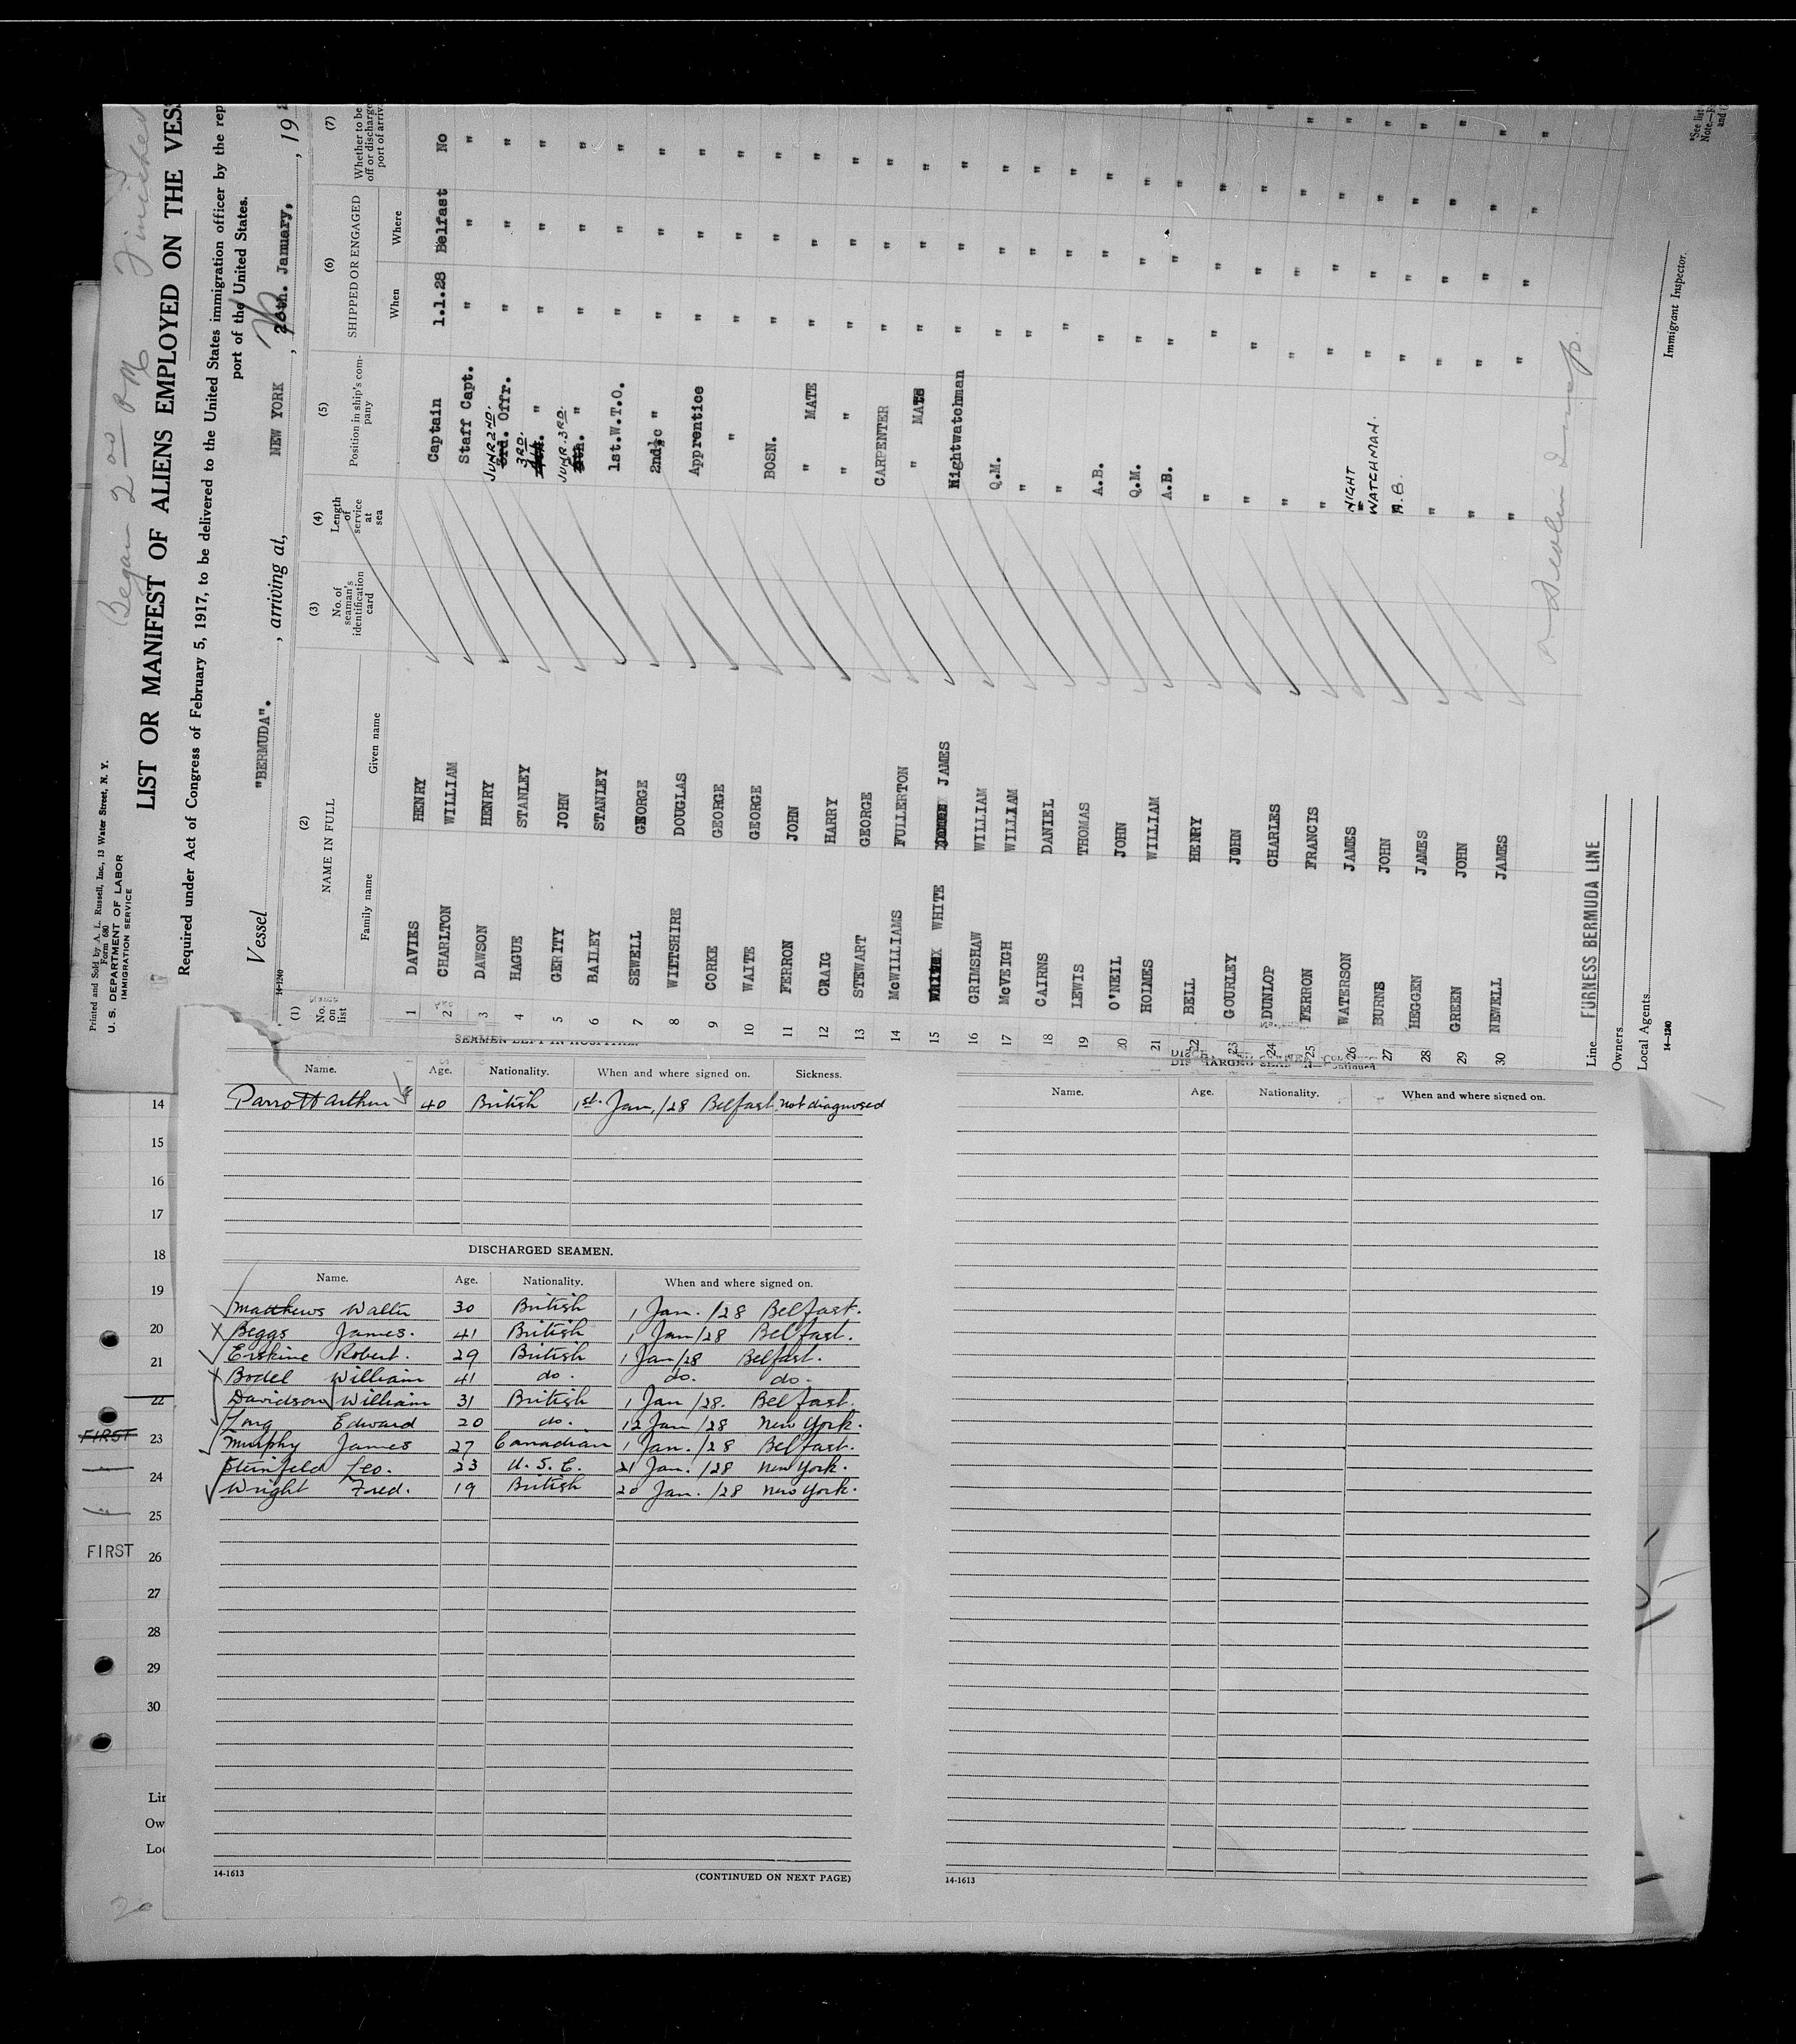 Began 2 00 PM Finished
Printed and Sold by A. L. Russell, Inc., 13 Water Street, N. Y.
Form 680
U. S. DEPARTMENT OF LABOR
IMMIGRATION SERVICE
LIST OR MANIFEST OF ALIENS EMPLOYED ON THE VES
Required under Act of Congress of February 5, 1917, to be delivered to the United States immigration officer by the rep
port of the United States.
Vessel "BERMUDA". , arriving at, NEW YORK , 26th. January, , 19 2
14-1240
(1) No. on list
(2) NAME IN FULL
Family name Given name
(3) No. of seaman's identification card
(4) Length of service at sea
(5) Position in ship's company
(6) SHIPPED OR ENGAGED
When Where
(7) Whether to be off or discharge port of arriv
1 DAVIES HENRY Captain 1.1.28 Belfast No
2 CHARLTON WILLIAM Staff Capt. " " "
3 DAWSON HENRY JUNR 2ND. 3rd. Offr. " " "
4 HAGUE STANLEY 3RD. 4th. " " " "
5 GERITY JOHN JUNR. 3RD. 5th. " " " "
6 BAILEY STANLEY 1st.W.T.O. " " "
7 SEWELL GEORGE 2nd. " " " "
8 WITTSHIRE DOUGLAS Apprentice " " "
9 CORKE GEORGE " " " "
10 WAITE GEORGE BOSN. " " "
11 FERRON JOHN " MATE " " "
12 CRAIG HARRY " " " " "
13 STEWART GEORGE CARPENTER " " "
14 McWILLIAMS FULLERTON " MATE " " "
15 WHITE JAMES Nightwatchman " " "
16 GRIMSHAW WILLIAM Q.M. " " "
17 McVEIGH WILLIAM " " " "
18 CAIRNS DANIEL " " " "
19 LEWIS THOMAS A.B. " " "
20 O'NEIL JOHN Q.M. " " "
21 HOLMES WILLIAM A.B. " " "
22 BELL HENRY " " " "
23 GOURLEY JOHN " " " "
24 DUNLOP CHARLES " " " "
25 FERRON FRANCIS " " " "
26 WATERSON JAMES NIGHT WATCHMAN. " " "
27 BURNS JOHN A.B. " " "
28 HEGGEN JAMES " " " "
29 GREEN JOHN " " " "
30 NEWELL JAMES " " " "
Line FURNESS BERMUDA LINE
Owners
Local Agents
14-1240
Immigrant Inspector.
*See list
Note.
and
SEAMEN LEFT IN HOSPITAL.
Name. Age. Nationality. When and where signed on. Sickness.
Parrott Arthur 40 British 1st. Jan,/28 Belfast. not diagnosed
DISCHARGED SEAMEN.
Name. Age. Nationality. When and where signed on.
Matthews Walter 30 British 1 Jan. /28 Belfast.
Beggs James. 41 British 1 Jan /28 Belfast.
Erskine Robert. 29 British 1 Jan /28 Belfast.
Bodel William 41 do. do. do.
Davidson William 31 British 1 Jan /28. Belfast.
Long Edward 20 do. 12 Jan /28 New York.
Murphy James 27 Canadian 1 Jan. /28 Belfast.
Steinfeld Leo. 23 U. S. C. 21 Jan. /28 New York.
Wright Fred. 19 British 20 Jan. /28 New York.
14-1613
(CONTINUED ON NEXT PAGE)
DISCHARGED SEAMEN—Continued
Name. Age. Nationality. When and where signed on.
14-1613
14
15
16
17
18
19
20
21
22
FIRST 23
24
25
FIRST 26
27
28
29
30
Lin
Ow
Loc